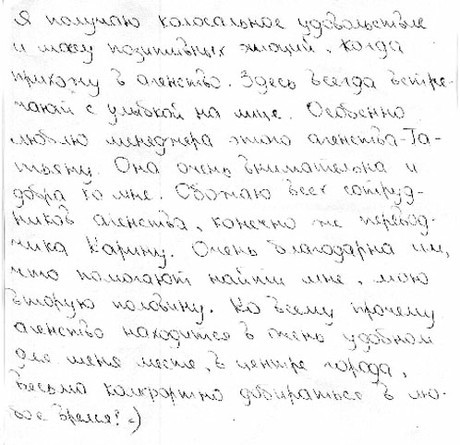 Я получаю колосальное удовольствие
и массу позитивных эмоций, когда
прихожу в агенство. Здесь всегда встре-
чают с улыбкой на лице. Особенно
люблю менеджера этого агенства-Та-
тьяну. Она очень внимательна и
добра ко мне. Обожаю всех сотруд-
ников агенства, конечно же перевод-
чика Карину. Очень благодарна им,
что помогают найти мне, мою
вторую половину. Ко всему прочему
агенство находится в очень удобном
для меня месте, в центре города,
весьма комфортно добираться в лю-
бое время! =)